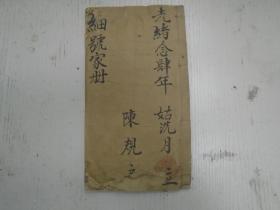 光緒念肆年 姑洗月 立
細號家册
陳規